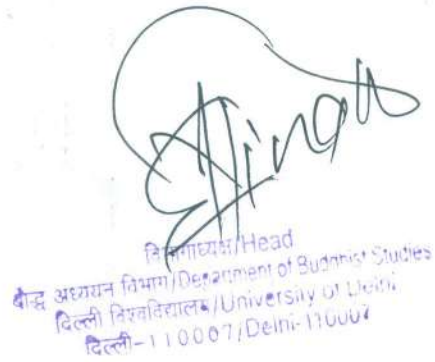 विभागाध्यक्ष/Head
बौद्ध अध्ययन विभाग/Department of Buddhist Studies
दिल्ली विश्वविद्यालय/University of Delhi
दिल्ली-110007/Delhi-110007